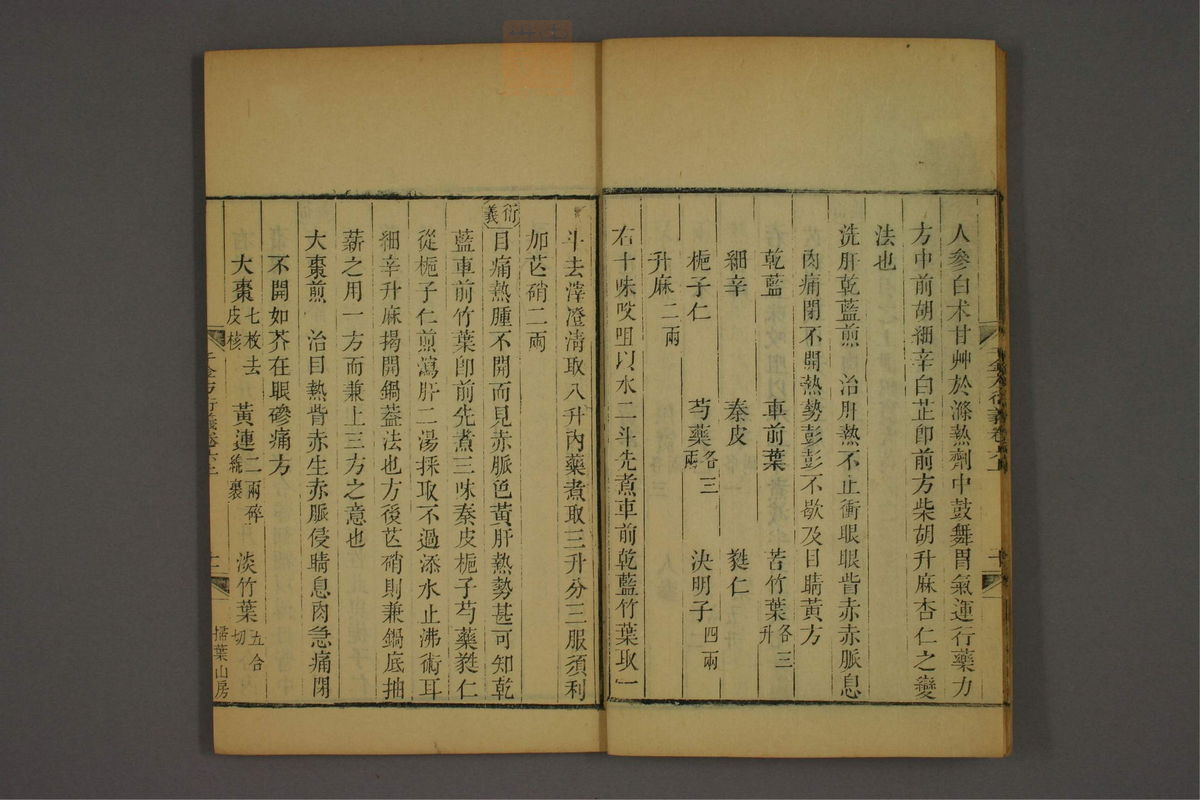 人參白术甘艸於滌熱劑中鼓舞胃氣運行藥力
方中前胡細辛白芷卽前方柴胡升麻杏仁之變
法也
洗肝乾藍煎 治肝熱不止衝眼眼眥赤赤脈息
肉痛閉不開熱勢彭彭不歇及目睛黃方
乾藍 車前葉 苦竹葉各三升
細辛 秦皮 蕤仁
梔子仁 芍藥各三兩 決明子四兩
升麻二兩
右十味㕮咀以水二斗先煮車前乾藍竹葉取一
斗去滓澄清取八升內藥煮取三升分三服須利
加芒硝二兩
衍義 目痛熱腫不開而見赤脈色黃肝熱勢甚可知乾
藍車前竹葉卽前先煮三味秦皮梔子芍藥蕤仁
從梔子仁煎瀉肝二湯採取不過添水止沸術耳
細辛升麻揭開鍋蓋法也方後芒硝則兼鍋底抽
薪之用一方而兼上三方之意也
大棗煎 治目熱眥赤生赤脈侵睛息肉急痛閉
不開如芥在眼磣痛方
大棗七枚去皮核 黃連二兩碎綿裹 淡竹葉五合切
千金方衍義卷六上
十一
掃葉山房